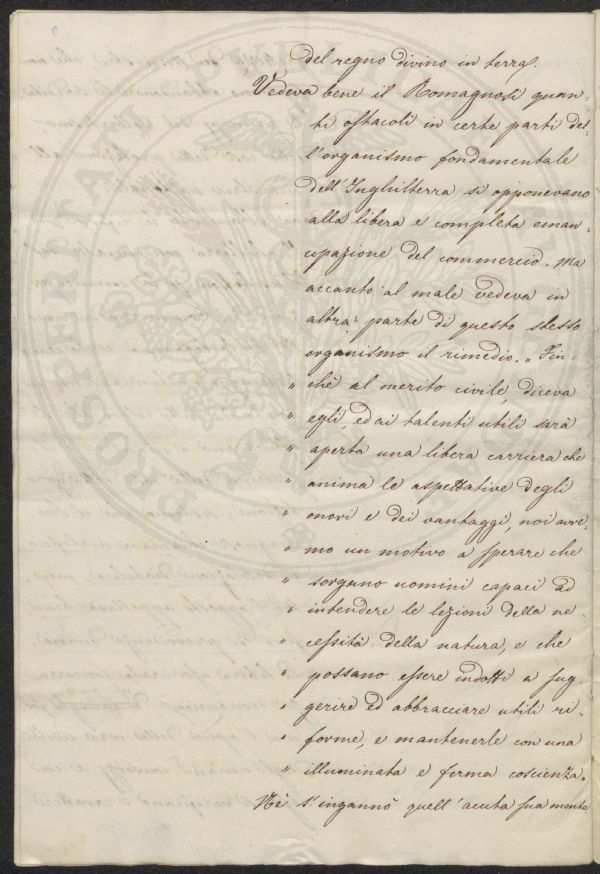 del regno divino in terra.
Vedeva bene il Romagnosi quan-
ti ostacoli in certe parti del-
l'organismo fondamentale
dell'Inghilterra si opponevano
alla libera e completa eman-
cipazione del commercio. Ma
accanto al male vedeva in
altra parte di questo stesso
organismo il rimedio. „ Fin-
„ chè al merito civile, diceva
„ egli, ed ai talenti utili sarà
„ aperta una libera carriera che
„ anima le aspettative degli
„ onori e dei vantaggi, noi avre-
„ mo un motivo a sperare che
„ sorgano uomini capaci ad
„ intendere le lezioni della ne-
„ cessità della natura, e che
„ possano essere indotti a sug-
„ gerire ed abbracciare utili ri-
„ forme, e mantenerle con una
„ illuminata e ferma coscienza.
Nè s'ingannò quell'acuta sua mente